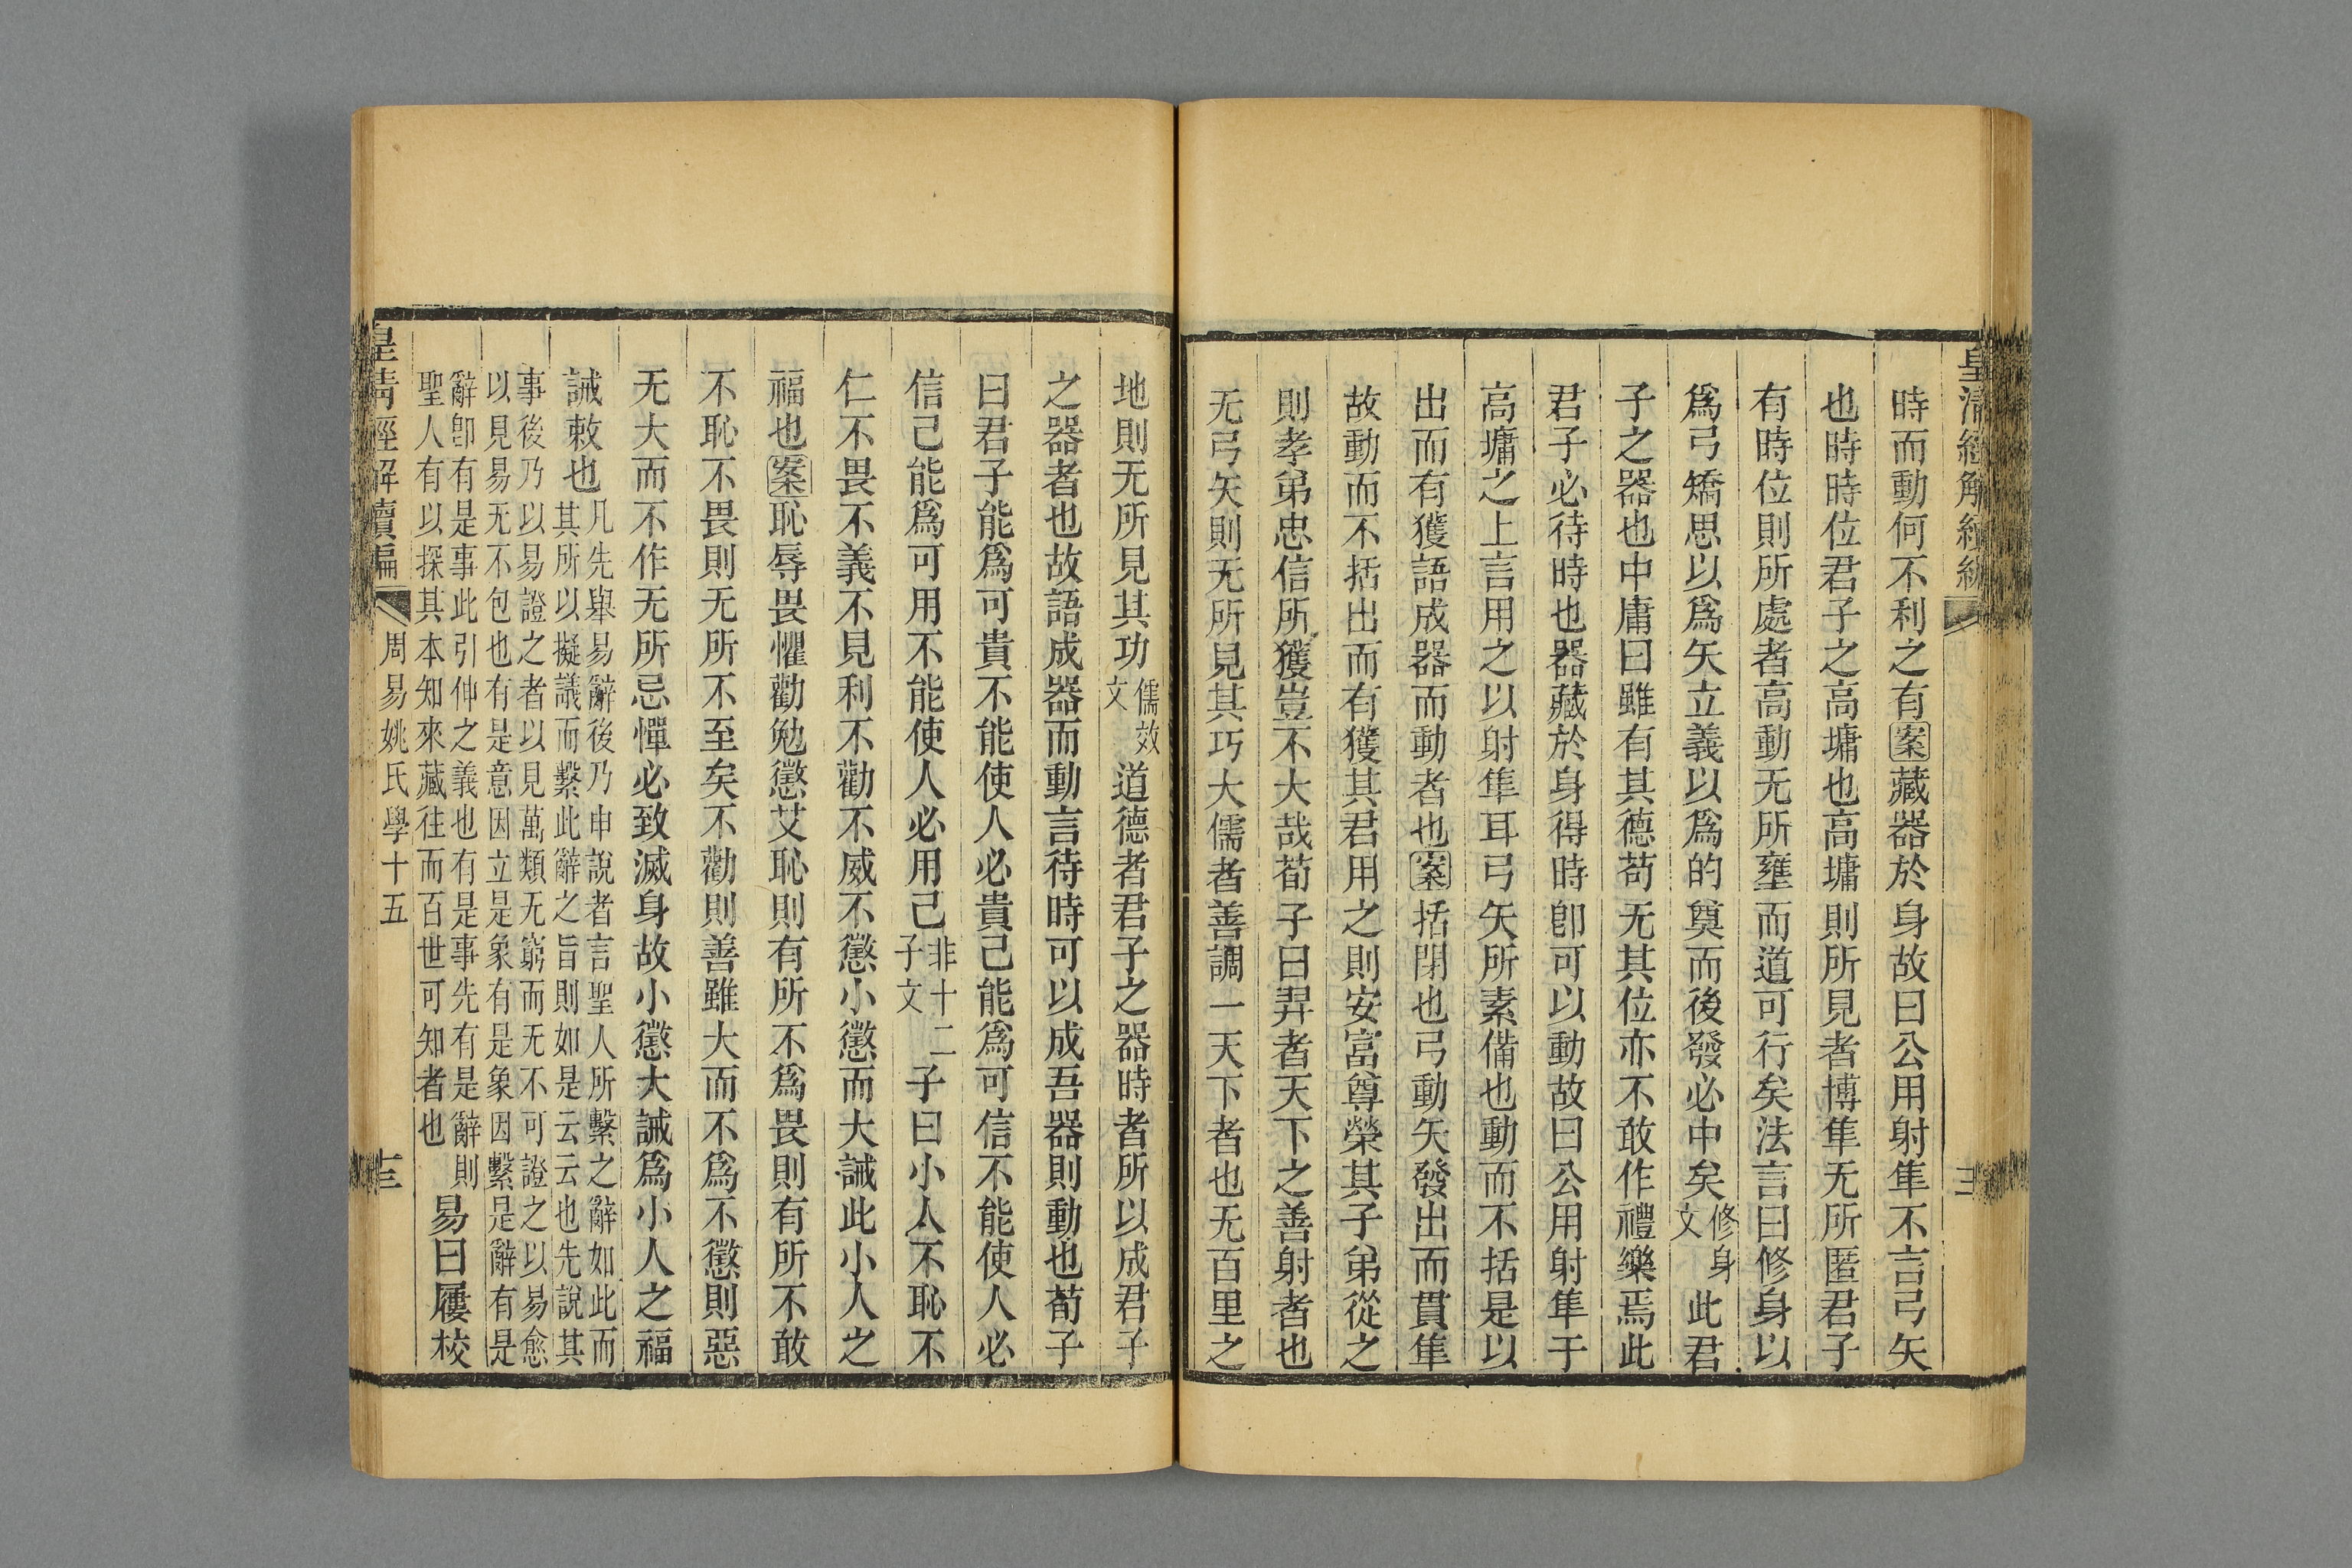 皇清經解續編
時而動何不利之有案藏器於身故曰公用射隼不言弓矢
也時時位君子之高墉也高墉則所見者博隼无所匿君子
有時位則所處者高動无所壅而道可行矣法言曰修身以
爲弓矯思以爲矢立義以爲的奠而後發必中矣修身文此君
子之器也中庸曰雖有其德苟无其位亦不敢作禮樂焉此
君子必待時也器藏於身得時卽可以動故曰公用射隼于
高墉之上言用之以射隼耳弓矢所素備也動而不括是以
出而有獲語成器而動者也案括閉也弓動矢發出而貫隼
故動而不括出而有獲其君用之則安富尊榮其子弟從之
則孝弟忠信所獲豈不大哉荀子曰羿者天下之善射者也
无弓矢則无所見其巧大儒者善調一天下者也无百里之
地則无所見其功儒效文道德者君子之器時者所以成君子
之器者也故語成器而動言待時可以成吾器則動也荀子
曰君子能爲可貴不能使人必貴己能爲可信不能使人必
信己能爲可用不能使人必用己非十二子文子曰小人不恥不
仁不畏不義不見利不勸不威不懲小懲而大誡此小人之
福也案恥辱畏懼勸勉懲艾恥則有所不爲畏則有所不敢
不恥不畏則无所不至矣不勸則善雖大而不爲不懲則惡
无大而不作无所忌憚必致滅身故小懲大誡爲小人之福
誡敕也凡先舉易辭後乃申說者言聖人所繫之辭如此而
其所以擬議而繫此辭之旨則如是云云也先說其
事後乃以易證之者以見萬類无窮而无不可證之以易愈
以見易无不包也有是意因立是象有是象因繫是辭有是
辭卽有是事此引伸之義也有是事先有是辭則
聖人有以探其本知來藏往而百世可知者也易曰屨校
皇清經解續編
周易姚氏學十五
三